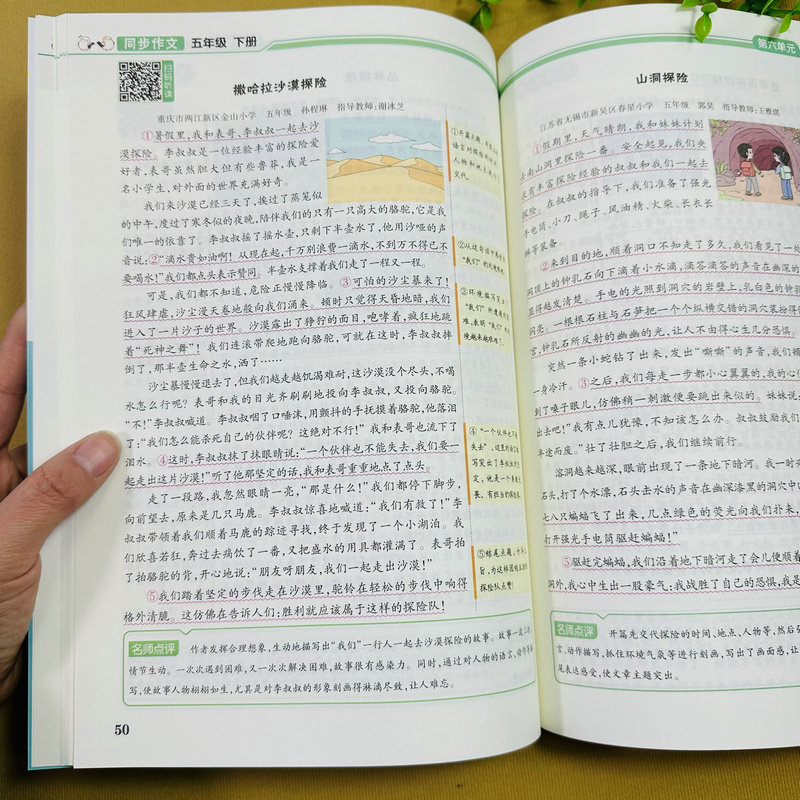 同步作文 五年级 下册
扫码听读
撒哈拉沙漠探险
重庆市两江新区金山小学 五年级 孙程琳 指导教师:谢冰芝
①暑假里,我和表哥、李叔叔一起去沙
漠探险。李叔叔是一位经验丰富的探险爱
好者,表哥虽然胆大但有些鲁莽,我是一
名小学生,对外面的世界充满好奇。
我们进沙漠已经三天了,挨过了蒸笼似
的中午,度过了寒冬似的夜晚,陪伴我们的只有一只高大的骆驼,它是我
们唯一的依靠了。李叔叔摇了摇水壶,只剩下半壶水了,他用沙哑的声
音说:②“滴水贵如油啊!从现在起,千万别浪费一滴水,不到万不得已不
要喝水!”我们都点头表示赞同。半壶水支撑着我们走了一程又一程。
可是,我们都不知道,危险正慢慢降临。③可怕的沙尘暴来了!
狂风肆虐,沙尘漫天卷地般向我们涌来。顿时只觉得天昏地暗,我们
进入了一片沙子的世界。沙漠露出了狰狞的面目,咆哮着,疯狂地跳
着“死神之舞”!我们连滚带爬地跑向骆驼,可就在这时,李叔叔摔
倒了,那半壶生命之水,洒了……
沙尘暴慢慢退去了,但我们越走越饥渴难耐,这沙漠没个尽头,不喝
水怎么行呢?表哥和我的目光齐刷刷地投向李叔叔,又投向骆驼。
“不!”李叔叔喊道。李叔叔咽了口唾沫,用颤抖的手抚摸着骆驼,他落泪
了:“我们怎么能杀死自己的伙伴呢?这绝对不行!”我和表哥也流下了
泪水。④这时,李叔叔抹了抹眼睛说:“一个伙伴也不能失去,我们要一
起走出这片沙漠!”听了他那坚定的话,我和表哥重重地点了点头。
走了一段路,我忽然眼睛一亮,“那是什么!”我们都停下脚步,
向前望去,原来是几只马鹿。李叔叔惊喜地喊道:“我们有救了!”李
叔叔带领着我们顺着马鹿的踪迹寻找,终于发现了一个小湖泊。我
们欣喜若狂,奔过去痛饮了一番,又把盛水的用具都灌满了。表哥拍
了拍骆驼的背,开心地说:“朋友呀朋友,我们一起走出沙漠!”
⑤我们踏着坚定的步伐走在沙漠里,驼铃在轻松的步伐中响得
格外清脆。这仿佛在告诉人们:胜利就应该属于这样的探险队!
①开篇点题,
人物和地点
交代。
③环境描写突出了
④“一个伙伴也不能
失去”,
⑤结尾点题,
探险队点赞!
名师点评
作者发挥合理想象,生动地描写出“我们”一行人一起去沙漠探险的故事。故事一波三折,
情节生动。一次次遇到困难,又一次次解决困难,故事很有感染力。同时,通过对人物的语言、动作等描
写,使故事人物栩栩如生,尤其是对李叔叔的形象刻画得淋漓尽致,让人难忘。
50
第六单元
山洞探险
江苏省无锡市新吴区春星小学 五年级 郭昊 指导教师:王雅琪
①假期里,天气晴朗,我和妹妹计划
去南山洞里探险一番。安全起见,我们央
求有丰富探险经验的叔叔和我们一起去
探险。在叔叔的指导下,我们准备了强光
手电筒、小刀、绳子、风油精、火柴、长衣长
裤等装备。
②来到目的地,顺着洞口不知走了多久,我们看见了一处
洞顶上的钟乳石向下滴着小水滴,滴答滴答的声音在幽深的
里显得越发清楚。手电的光照到洞穴的岩壁上,乳白色的钟乳
闪亮。一根根石柱与石笋把一个个纵横交错的洞穴装扮得
宫,钟乳石所反射的幽幽的光,让人不由得心生几分恐惧。
突然一条小蛇钻了出来,发出“嘶嘶”的声音,我们
一身冷汗。③之后,我们每走一步都小心翼翼的,我的心
到了嗓子眼儿,仿佛稍一刺激便要跳出来似的。妹妹说:
出去吧!”我有点儿犹豫,不知该怎么办。叔叔鼓励我们
半途而废。”壮了壮胆之后,我们继续前行。
溶洞越来越深,眼前出现了一条地下暗河。我一时
石头,打了个水漂,石头击水的声音在幽深漆黑的洞穴中
七八只蝙蝠飞了出来,几点绿色的荧光向我们扑来,
打开强光手电筒驱赶蝙蝠!”
⑤驱赶完蝙蝠,我们沿着地下暗河走了会儿便顺着
洞外,我心中生出一股豪气:我战胜了自己的恐惧,我是
名师点评
开篇先交代探险的时间、地点、人物等,然后
言、动作描写,抓住环境气氛等进行刻画,写出了画面感,让
尾表达感受,使文章主题突出。